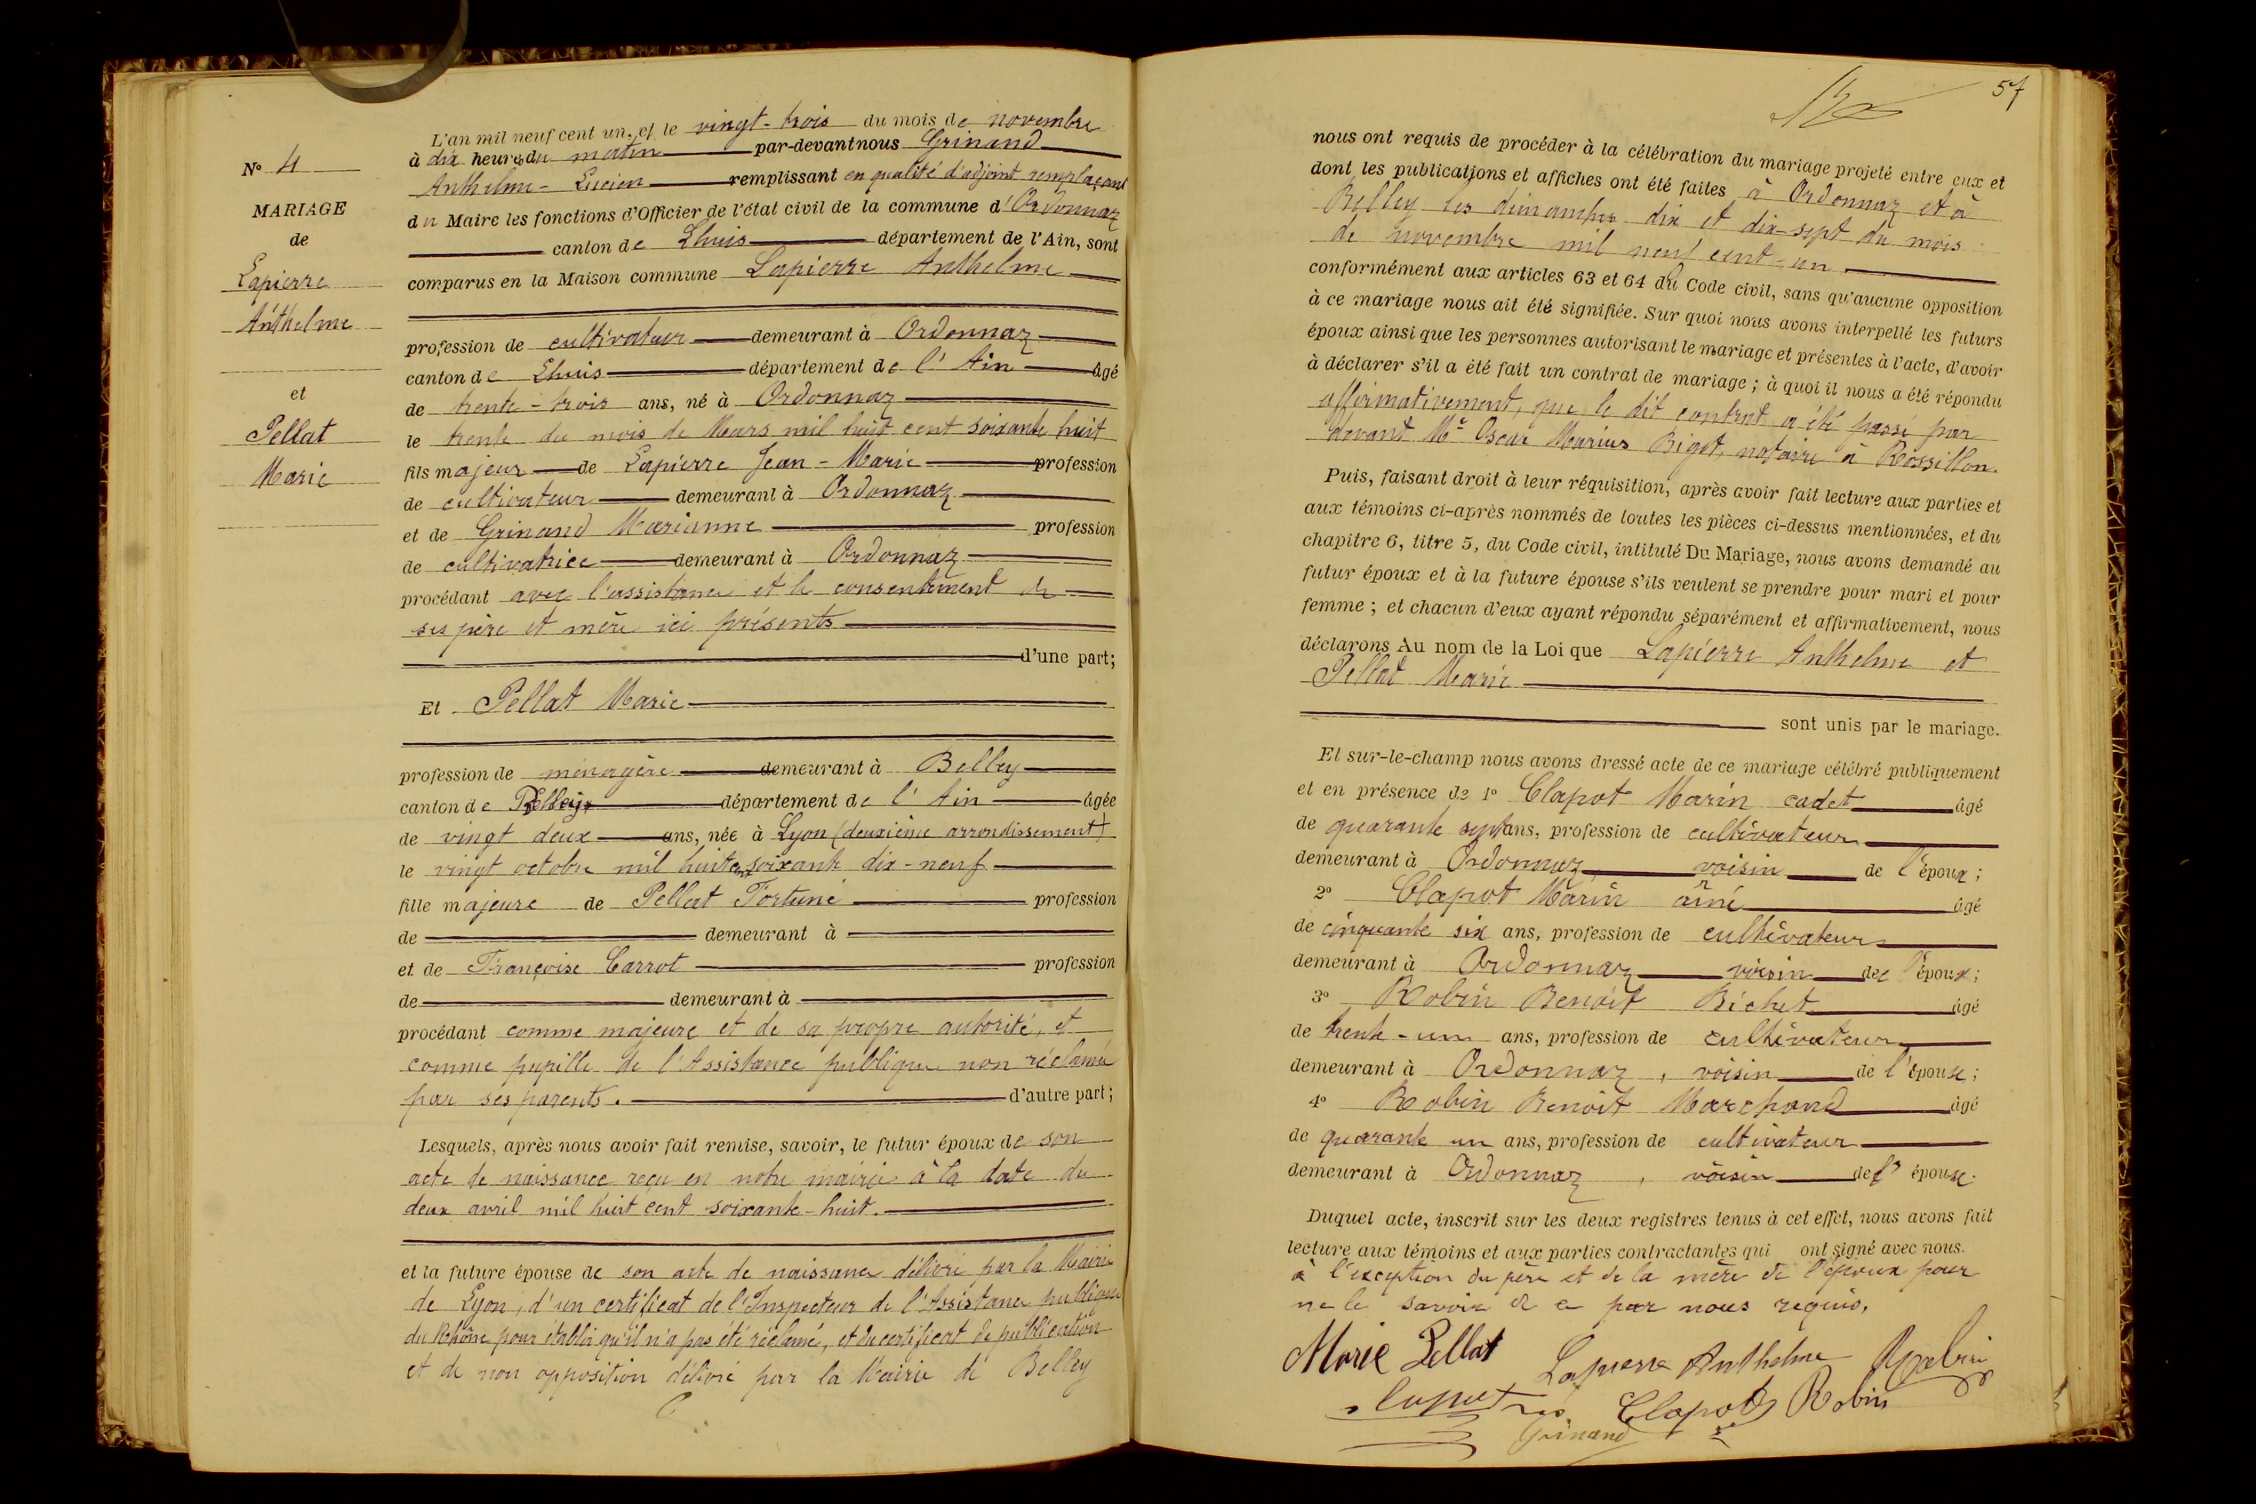 N° 4
MARIAGE
de
Lapierre
Anthelme
et
Pellat
Marie
L'an mil neuf cent un, et le vingt-trois du mois de novembre
à dix heures du matin par-devant nous Grinand
Anthelme-Lucien remplissant en qualité d'adjoint remplaçant
du Maire les fonctions d'Officier de l'état civil de la commune d'Ordonnaz
canton de Lhuis département de l'Ain, sont
comparus en la Maison commune Lapierre Anthelme
profession de cultivateur demeurant à Ordonnaz
canton de Lhuis département de l'Ain âgé
de trente-trois ans, né à Ordonnaz
le trente du mois de Mars mil huit cent soixante huit
fils majeur de Lapierre Jean-Marie profession
de cultivateur demeurant à Ordonnaz
et de Grinand Marianne profession
de cultivatrice demeurant à Ordonnaz
procédant avec l'assistance et le consentement de
ses père et mère ici présents
d'une part;
Et Pellat Marie
profession de ménagère demeurant à Belley
canton de Belley département de l'Ain âgée
de vingt deux ans, née à Lyon (deuxième arrondissement)
le vingt octobre mil huit cent soixante dix-neuf
fille majeure de Pellat Fortuné profession
de demeurant à
et de Françoise Carrot profession
de demeurant à
procédant comme majeure et de sa propre autorité, et
comme pupille de l'Assistance publique non réclamée
par ses parents. d'autre part;
Lesquels, après nous avoir fait remise, savoir, le futur époux de son
acte de naissance reçu en notre mairie à la date du
deux avril mil huit cent soixante-huit.
et la future épouse de son acte de naissance délivré par la Mairie
de Lyon, d'un certificat de l'Inspecteur de l'Assistance publique
du Rhône pour établir qu'il n'a pas été réclamé, et du certificat de publication
et de non opposition délivré par la Mairie de Belley
57
nous ont requis de procéder à la célébration du mariage projeté entre eux et
dont les publications et affiches ont été faites à Ordonnaz et à
Belley les dimanches dix et dix-sept du mois
de novembre mil neuf cent-un
conformément aux articles 63 et 64 du Code civil, sans qu'aucune opposition
à ce mariage nous ait été signifiée. Sur quoi nous avons interpellé les futurs
époux ainsi que les personnes autorisant le mariage et présentes à l'acte, d'avoir
à déclarer s'il a été fait un contrat de mariage; à quoi il nous a été répondu
affirmativement, que le dit contrat a été passé par
devant Me Oscar Marius Bigot, notaire à Rossillon.
Puis, faisant droit à leur réquisition, après avoir fait lecture aux parties et
aux témoins ci-après nommés de toutes les pièces ci-dessus mentionnées, et du
chapitre 6, titre 5, du Code civil, intitulé Du Mariage, nous avons demandé au
futur époux et à la future épouse s'ils veulent se prendre pour mari et pour
femme; et chacun d'eux ayant répondu séparément et affirmativement, nous
déclarons Au nom de la Loi que Lapierre Anthelme et
Pellat Marie
sont unis par le mariage.
Et sur-le-champ nous avons dressé acte de ce mariage célébré publiquement
et en présence de 1° Clapot Marin cadet âgé
de quarante sept ans, profession de cultivateur
demeurant à Ordonnaz voisin de l'époux;
2° Clapot Marin aîné âgé
de cinquante six ans, profession de cultivateur
demeurant à Ordonnaz voisin de l'époux;
3° Robin Benoit Bichet âgé
de trente-un ans, profession de cultivateur
demeurant à Ordonnaz, voisin de l'épouse;
4° Robin Benoit Marchand âgé
de quarante un ans, profession de cultivateur
demeurant à Ordonnaz, voisin de l'épouse.
Duquel acte, inscrit sur les deux registres tenus à cet effet, nous avons fait
lecture aux témoins et aux parties contractantes qui ont signé avec nous.
à l'exception du père et de la mère de l'époux pour
ne le savoir de ce par nous requis.
Marie Pellat Lapierre Anthelme Robin
Clapot Robin
Grinand